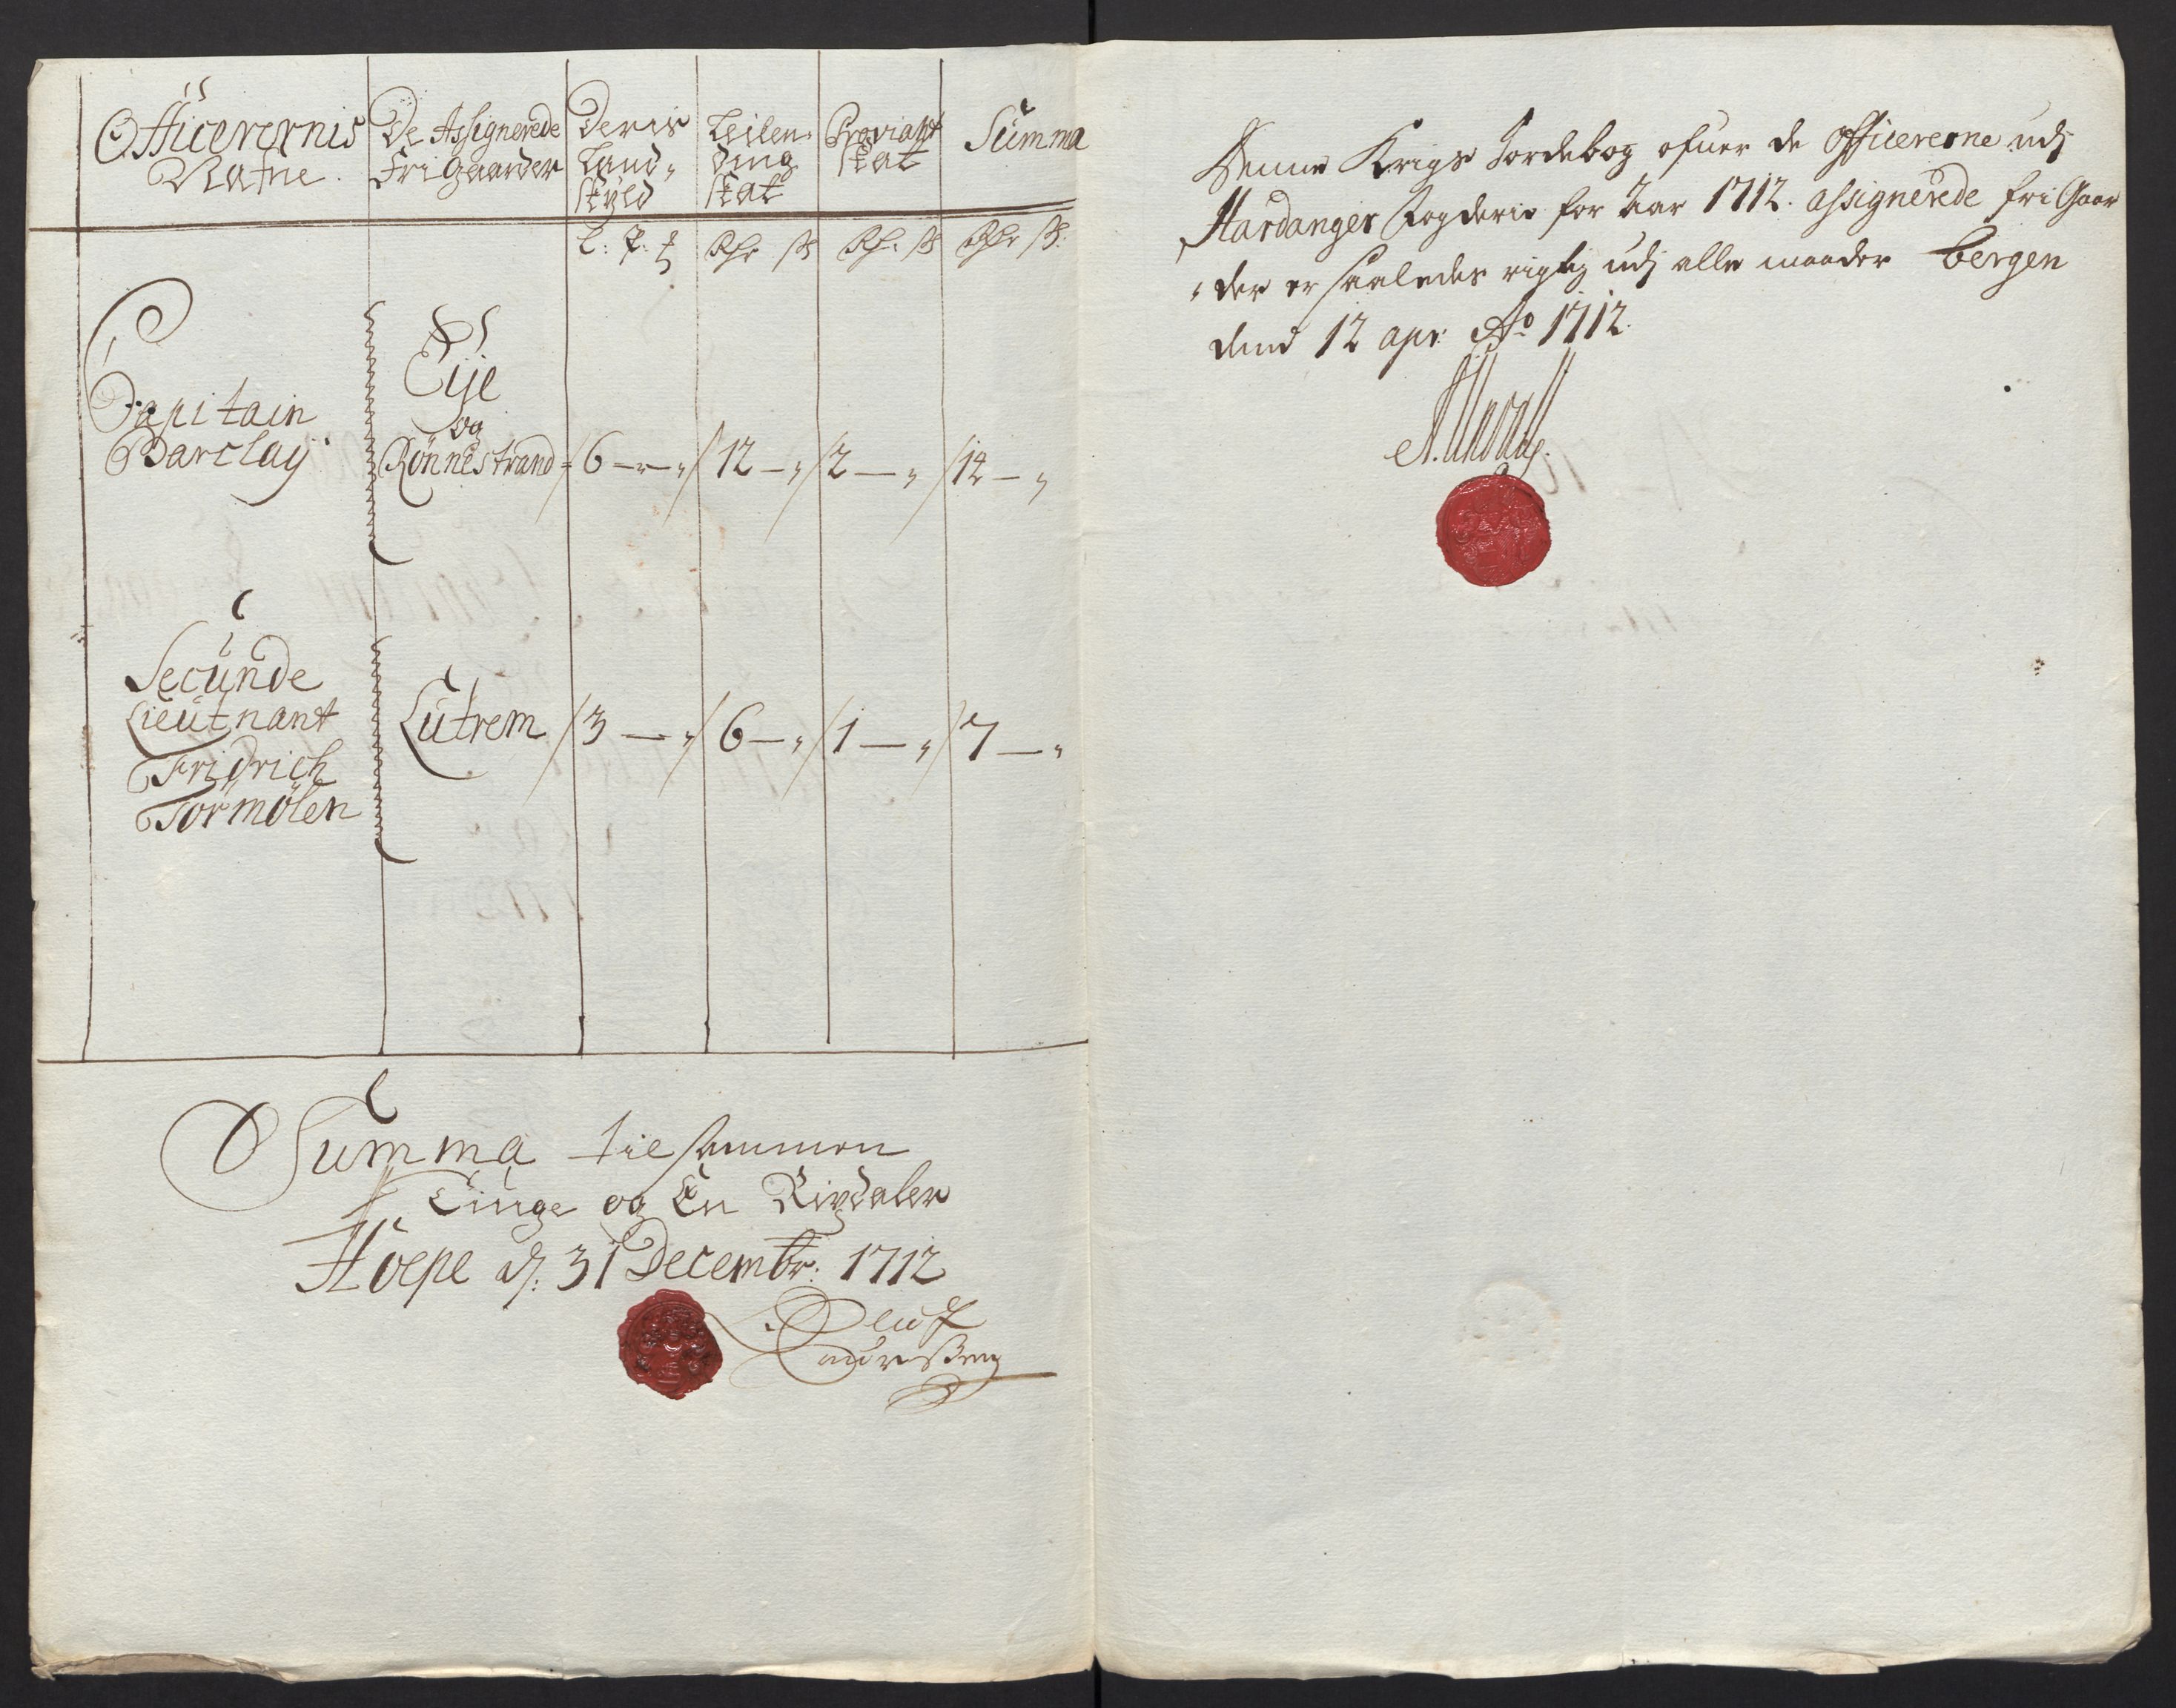 Officerernis
Nafne.
De Assignerede
Fri gaarder
Deris
Land-
skyld
Leilen-
ding
skat
Proviant
skat
Summa
L: P: Rdr ß Rdr ß Rdr ß
Capitain
Barclay
Eije
og
Rønnestrand 6 — - — " 12 — " 2 — " 14 — "
Secunde
Lieutnant
Fridrich
Tormølen
Lutrem 3 — " 6 — " 1 — " 7 — "
Summa tilsammen
Tiuge og En Rixdaler
Hoepe d: 31 Decembr: 1712
Oluf
Laurssen
Denne Krigs Jordebog ofuer de Officererne udj
Hardanger Fogderie for Aar 1712. assignerede fri Gaar
der er saaledes rigtig udj alle maader Bergen
dend 12 apr: Ao 1712.